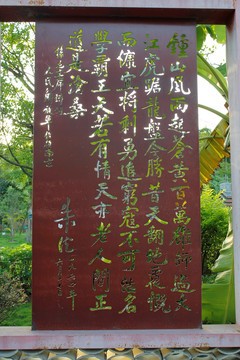 鍾山风雨起蒼黄百萬雄師過大
江虎踞龍盤今勝昔天翻地覆慨
而慷宜將剩勇追窮寇不可沽名
學霸王天若有情天亦老人间正
道是滄桑